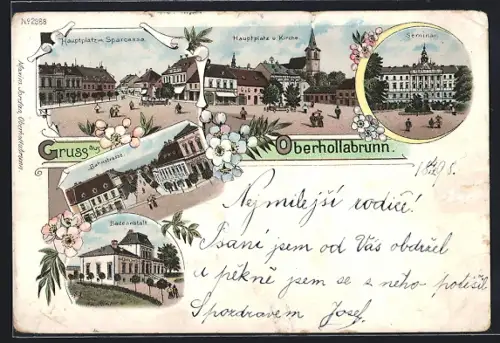 No 2588
Hauptplatz m. Sparcassa.
Hauptplatz u. Kirche
Seminar.
Maxim. Jordan, Oberhollabrunn.
Gruss aus Oberhollabrunn.
Bahnstrasse
Badeanstalt
Nejmilejší rodiče!
Psaní jsem od Vás obdržel
a pěkně jsem se s něho potěšil
S pozdravem Josef